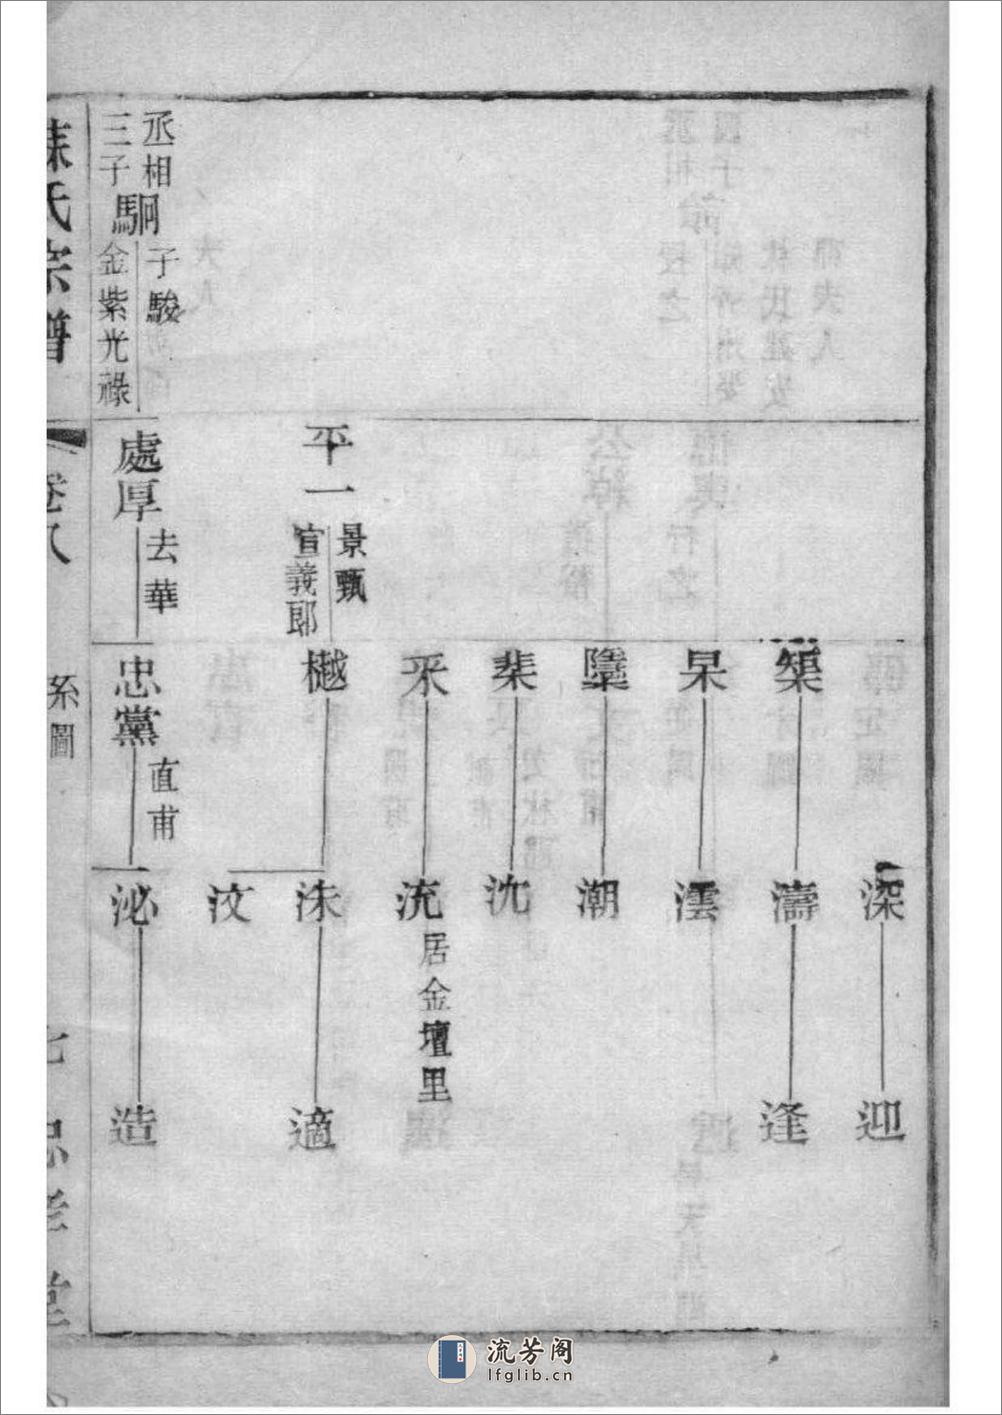 深
迎
榘
濤
逢
杲
澐
墬
潮
棐
沈
采
沇
居金壇里
平一
景甄
宣義郎
樾
洙
適
汶
丞相
三子
駉
子駿
金紫光祿
處厚
去華
忠黨
直甫
泌
造
氏宗譜
卷八
系圖
流芳阁
lfglib.cn